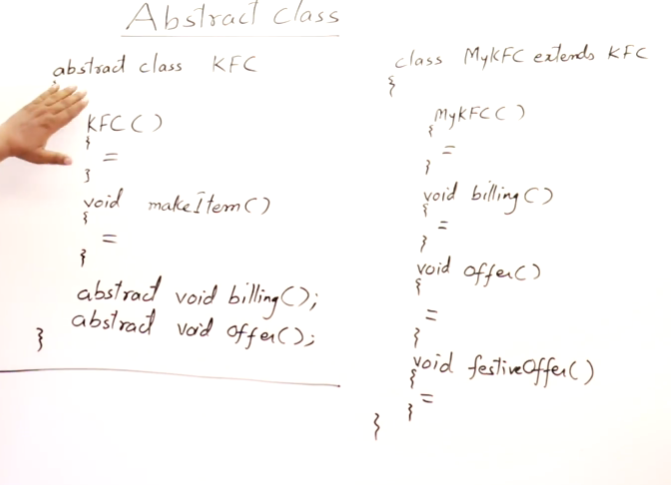 Abstract class
abstract class KFC
{
KFC()
{
=
}
void makeItem()
{
=
}
abstract void billing();
abstract void offer();
}
class MyKFC extends KFC
{
MyKFC()
{
=
}
void billing()
{
=
}
void offer()
{
=
}
void festiveOffer()
{
=
}
}